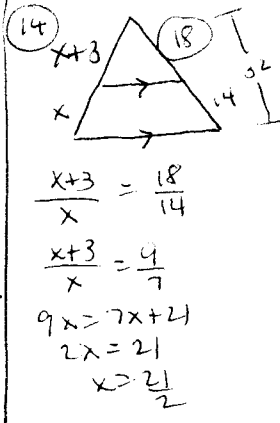 14
x+3
18
x
14
32
x+3/x = 18/14
x+3/x = 9/7
9x = 7x+21
2x = 21
x = 21/2